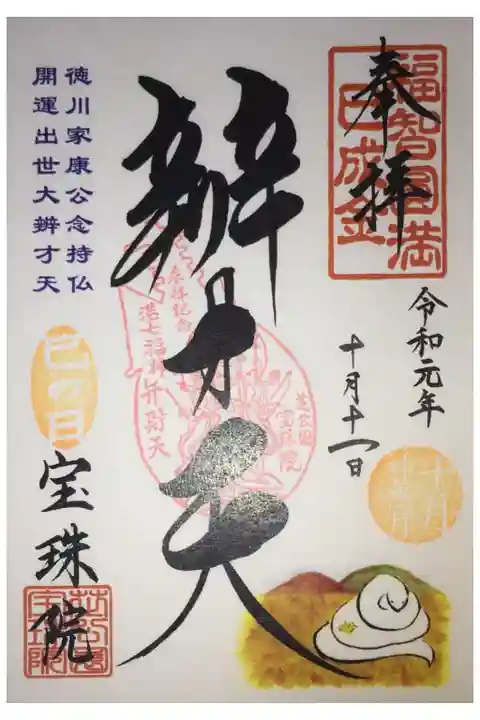 奉拝
福智円満
巳成金
令和元年
十月十一日
辨才天
参拝記念
港七福神弁財天
芝公園
宝珠院
徳川家康公念持仏
開運出世大辨才天
巳の日
宝珠院